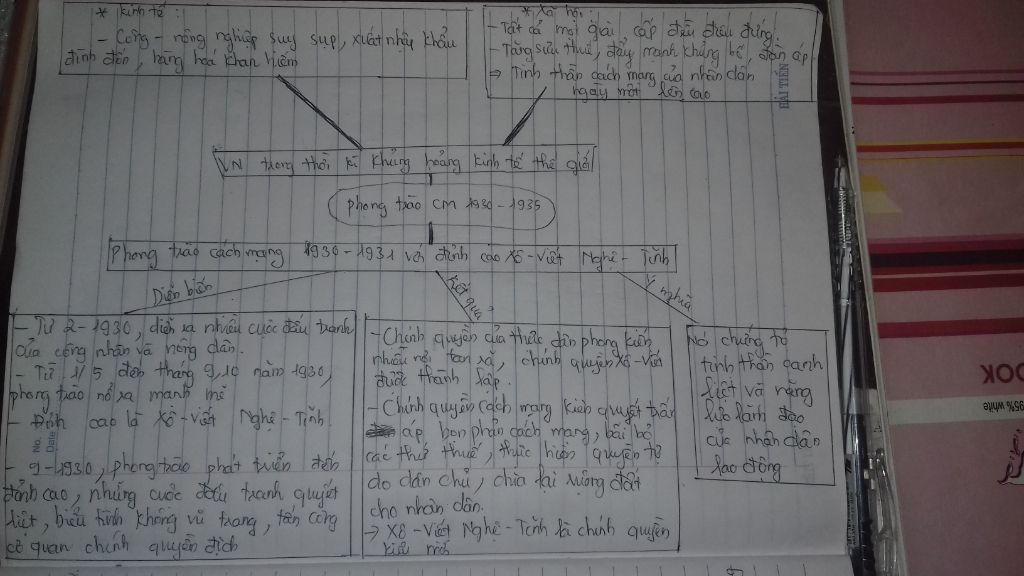 * Kinh tế :
- Công - nông nghiệp suy sụp, xuất nhập khẩu
đình đốn, hàng hoá khan hiếm
* Xã hội :
- Tất cả mọi giai cấp đều điêu đứng.
- Tăng sưu thuế, đẩy mạnh khủng bố, đàn áp
⇒ Tinh thần cách mạng của nhân dân
ngày một lên cao
HẢI TIẾN
VN trong thời kì khủng hoảng kinh tế thế giới
phong trào CM 1930 - 1935
Phong trào cách mạng 1930 - 1931 với đỉnh cao Xô - Viết Nghệ - Tĩnh
Diễn biến
Kết quả
Ý nghĩa
- Từ 2 - 1930, diễn ra nhiều cuộc đấu tranh
của công nhân và nông dân.
- Từ 1/5 đến tháng 9,10 năm 1930,
phong trào nổ ra mạnh mẽ
- Đỉnh cao là Xô - Viết Nghệ - Tĩnh.
No.
Date
- 9 - 1930, phong trào phát triển đến
đỉnh cao, những cuộc đấu tranh quyết
liệt, biểu tình không vũ trang, tấn công
cơ quan chính quyền địch
- Chính quyền của thực dân phong kiến
nhiều nơi tan rã, chính quyền Xô - Viết
được thành lập.
- Chính quyền cách mạng kiên quyết trấn
áp bọn phản cách mạng, bãi bỏ
các thứ thuế, thực hiện quyền tự
do dân chủ, chia lại ruộng đất
cho nhân dân.
→ Xô - Viết Nghệ - Tĩnh là chính quyền
kiểu mới
Nó chứng tỏ
tinh thần oanh
liệt và năng
lực lãnh đạo
của nhân dân
lao động
OOK
95% white